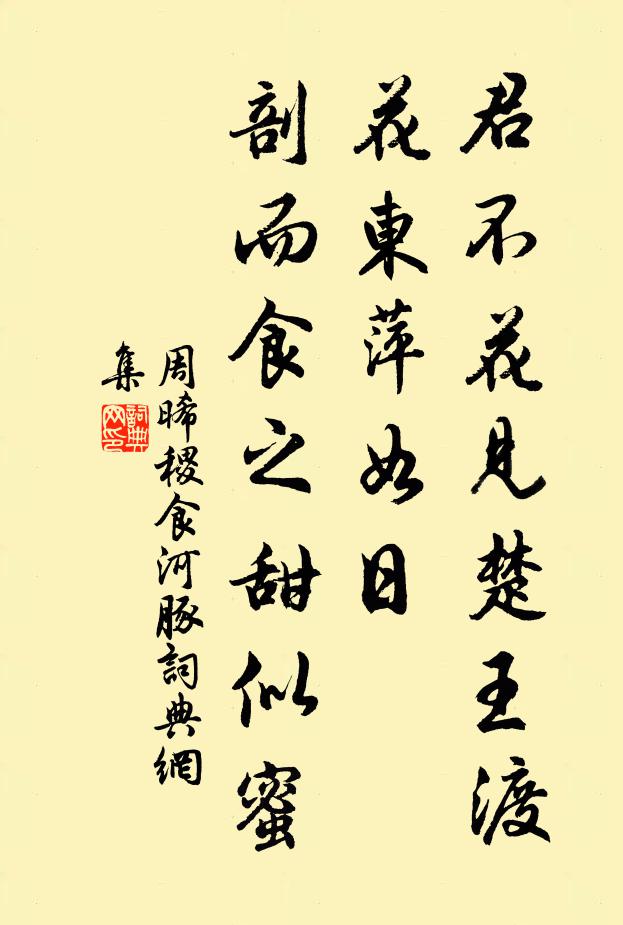 君不花見楚王渡
花東萍如日
剖而食之甜似蜜
周晞稷食河豚詞典網
集
詞典网印